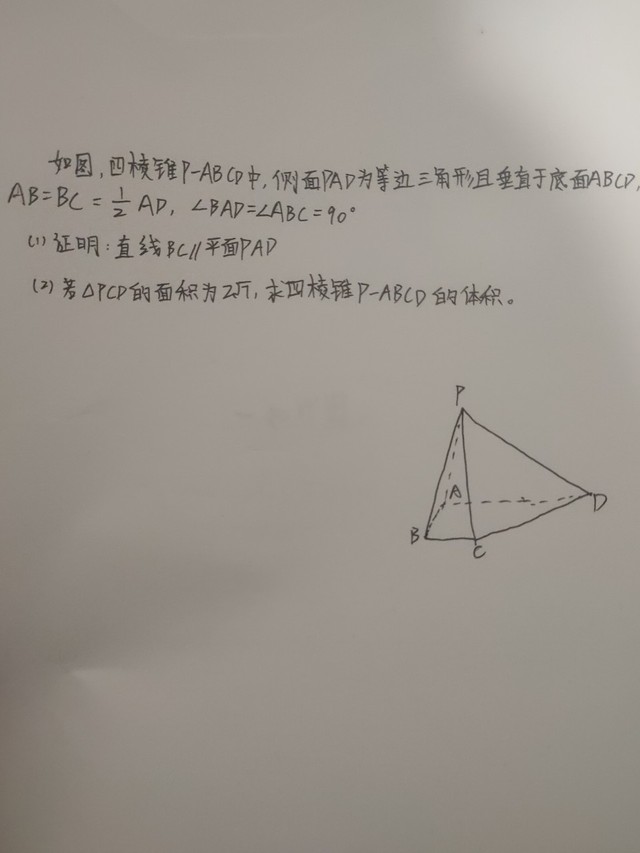 如图,四棱锥P-ABCD中,侧面PAD为等边三角形且垂直于底面ABCD,
AB=BC=1/2 AD, ∠BAD=∠ABC=90°
(1) 证明:直线BC//平面PAD
(2) 若△PCD的面积为2√7, 求四棱锥P-ABCD的体积。
P
A
D
B
C